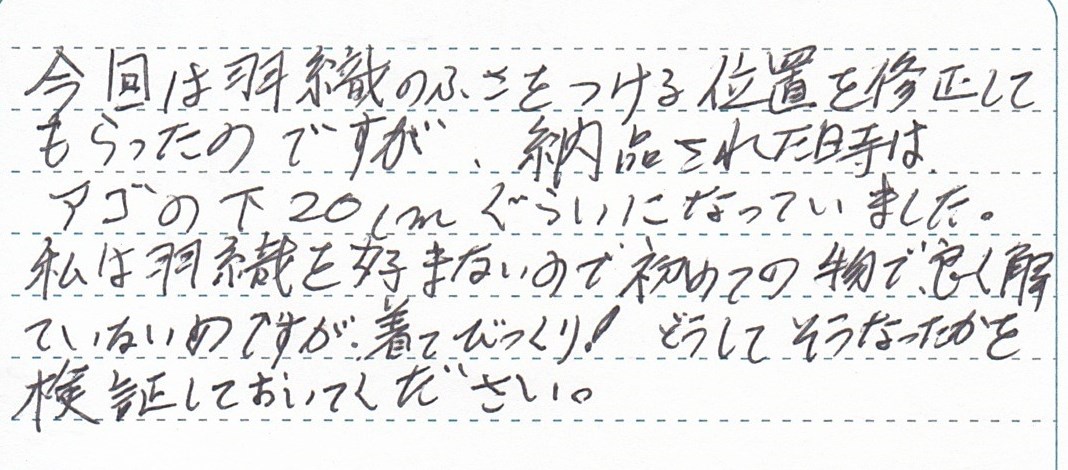 今回は羽織のふさをつける位置を修正して
もらったのですが、納品された時は、
アゴの下20cmぐらいになっていました。
私は羽織を好まないので初めての物で、良く解
ていないのですが、着てびっくり! どうしてそうなったかを
検証しておいてください。